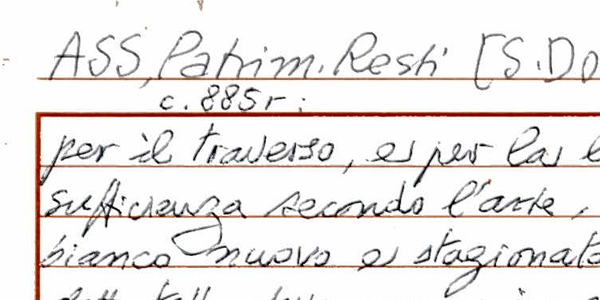 ASS, Patrim. Resti [S. Do
c. 885r:
per il traverso, e per la
sufficienza secondo l'arte,
bianco nuovo e stagionato